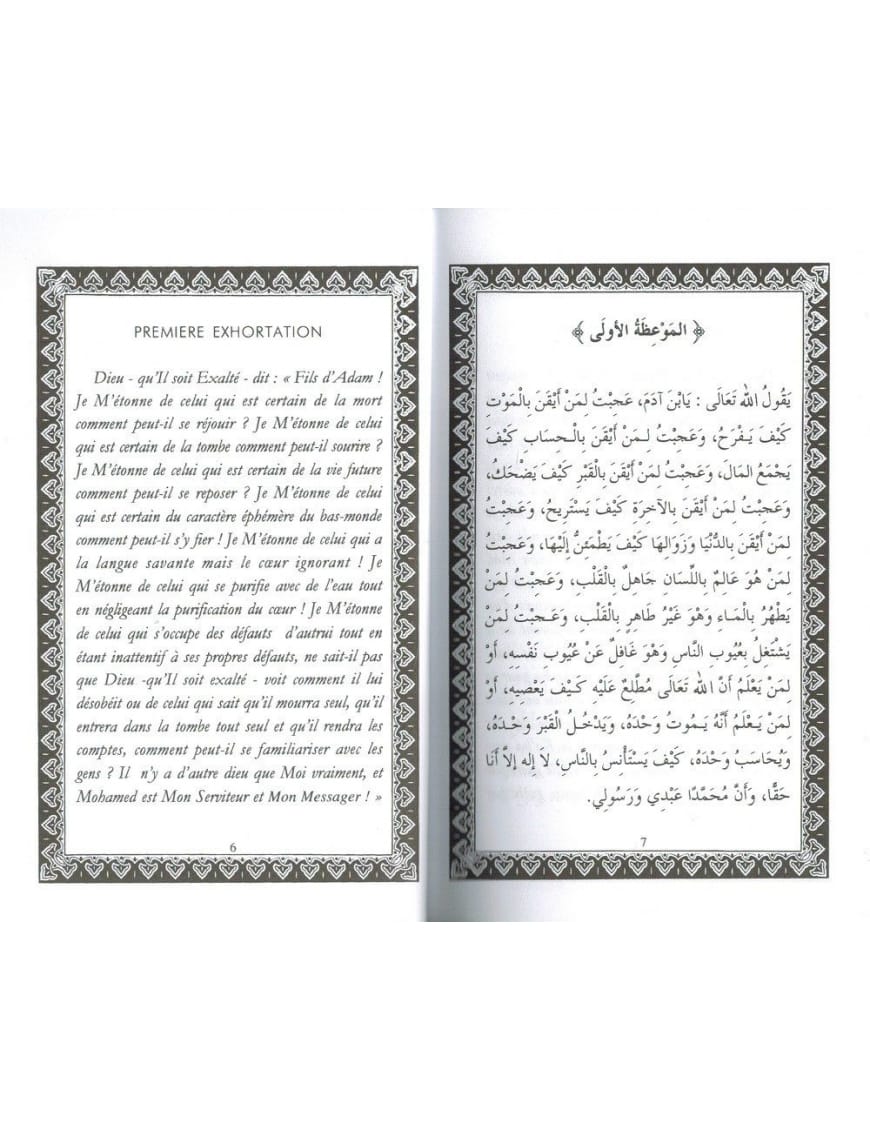 PREMIERE EXHORTATION
Dieu - qu'Il soit Exalté - dit : « Fils d'Adam !
Je M'étonne de celui qui est certain de la mort
comment peut-il se réjouir ? Je M'étonne de celui
qui est certain de la tombe comment peut-il sourire ?
Je M'étonne de celui qui est certain de la vie future
comment peut-il se reposer ? Je M'étonne de celui
qui est certain du caractère éphémère du bas-monde
comment peut-il s'y fier ! Je M'étonne de celui qui a
la langue savante mais le cœur ignorant ! Je
M'étonne de celui qui se purifie avec de l'eau tout
en négligeant la purification du cœur ! Je M'étonne
de celui qui s'occupe des défauts d'autrui tout en
étant inattentif à ses propres défauts, ne sait-il pas
que Dieu -qu'Il soit exalté - voit comment il lui
désobéit ou de celui qui sait qu'il mourra seul, qu'il
entrera dans la tombe tout seul et qu'il rendra les
comptes, comment peut-il se familiariser avec les
gens ? Il n'y a d'autre dieu que Moi vraiment, et
Mohamed est Mon Serviteur et Mon Messager ! »
6
﴿ المَوْعِظَةُ الأولَى ﴾
يَقُولُ الله تَعَالَى : يَابْنَ آدَمَ، عَجِبْتُ لِمَنْ أَيْقَنَ بِالْمَوْتِ
كَيْفَ يَـفْرَحُ، وَعَجِبْتُ لِـمَنْ أَيْقَنَ بِالْـحِسَابِ كَيْفَ
يَجْمَعُ المَالَ، وَعَجِبْتُ لِمَنْ أَيْقَنَ بِالْقَبْرِ كَيْفَ يَضْحَكُ،
وَعَجِبْتُ لِمَنْ أَيْقَنَ بِالآخِرَةِ كَيْفَ يَسْتَرِيحُ، وَعَجِبْتُ
لِمَنْ أَيْقَنَ بِالدُّنْيَا وَزَوَالِهَا كَيْفَ يَطْمَئِنُّ إِلَيْهَا، وَعَجِبْتُ
لِمَنْ هُوَ عَالِمٌ بِاللِّسَانِ جَاهِلٌ بِالْقَلْبِ، وَعَجِبْتُ لِمَنْ
يَطْهُرُ بِالْمَـاءِ وَهوَ غَيْرُ طَاهِرٍ بِالْقَلْبِ، وَعَـجِبْتُ لِمَنْ
يَشْتَغِلُ بِعُيُوبِ النَّاسِ وَهوَ غَافِلٌ عَنْ عُيُوبِ نَفْسِهِ، أَوْ
لِمَنْ يَعْلَمُ أَنَّ الله تَعَالَى مُطَّلِعٌ عَلَيْهِ كَـيْفَ يَعْصِيهِ، أَوْ
لِمَنْ يَـعْلَمُ أَنَّهُ يَـمُوتُ وَحْدَهُ، وَيَدْخُـلُ الْقَبْرَ وَحْـدَهُ،
وَيُحَاسَبُ وَحْدَهُ، كَيْفَ يَسْتَأْنِسُ بِالنَّاسِ، لاَ إِله إِلاَّ أَنَا
حَقًّا، وَأَنَّ مُحَمَّدًا عَبْدِي وَرَسُولِي.
7